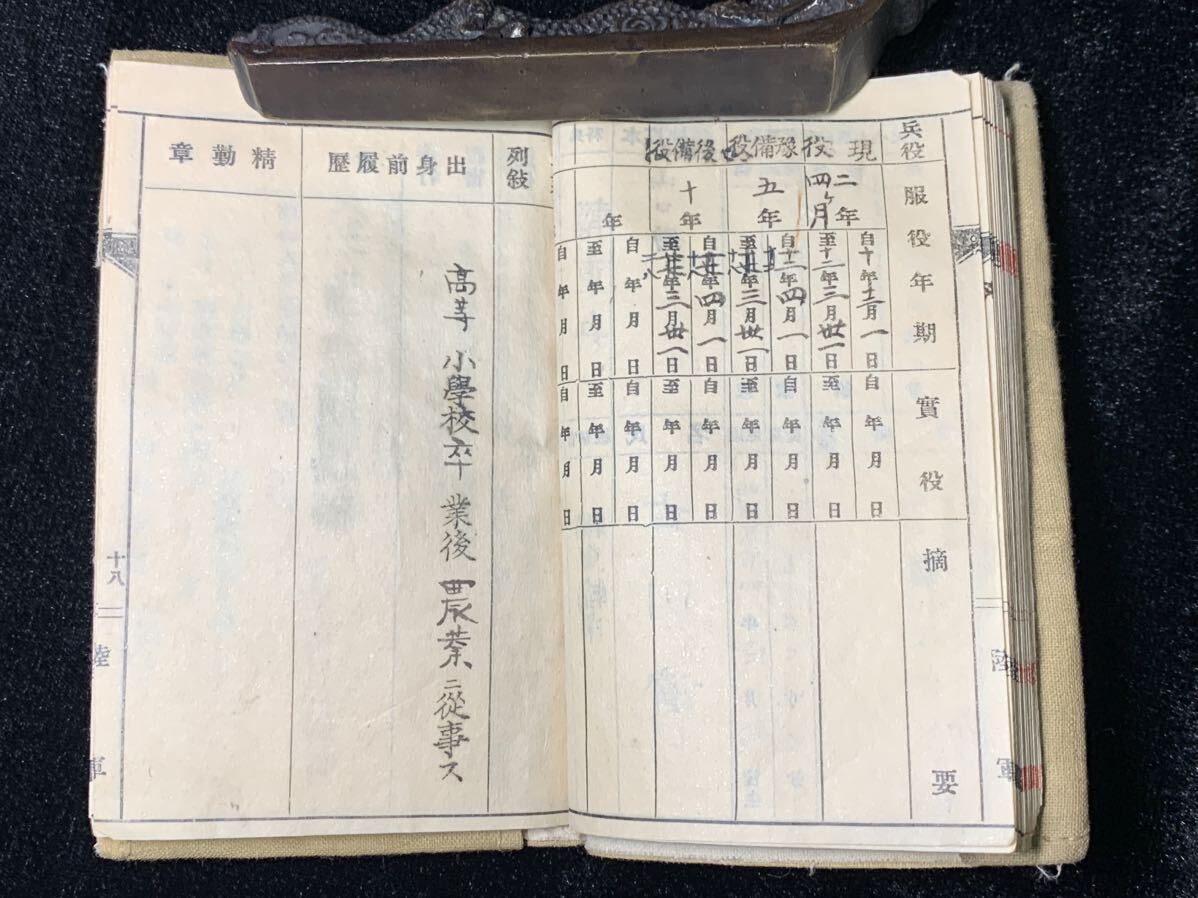 兵役
服役年期
實役
摘要
現役
二年四ヶ月
自十年十二月一日
年三月卅一日
自年月日
至年月日
豫備役
五年
自年四月一日
至年三月卅一日
自年月日
至年月日
後備役
十年
自年四月一日
至年三月卅一日
自年月日
至年月日
年
自年月日
至年月日
自年月日
至年月日
自年月日
陸軍
列敍
出身前履歷
高等小學校卒業後農業ニ從事ス
精勤章
十八
陸軍